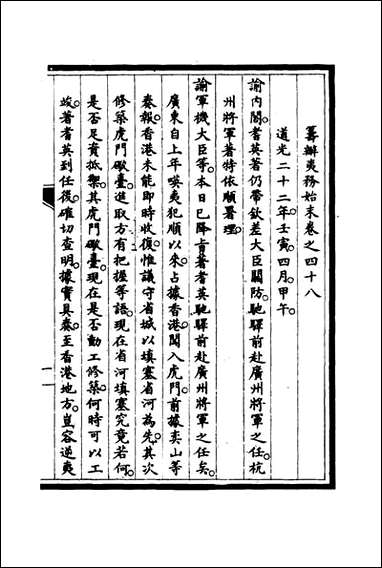 籌辦夷務始末卷之四十八
道光二十二年。壬寅。四月。甲午。
諭內閣。耆英著仍帶欽差大臣關防。馳驛前赴廣州將軍之任。杭
州將軍著特依順署理。
諭軍機大臣等。本日已降旨著耆英馳驛前赴廣州將軍之任矣。
廣東自上年嘆夷犯順以來。占據香港。闖入虎門。前據奕山等
奏報。香港未能即時收復。惟議守省城以填塞省河為先。其次
修築虎門礮臺。進取方有把握等語。現在省河填塞究竟若何。
是否足資抵禦。其虎門礮臺。現在是否動工修築。何時可以工
竣。著耆英到任後。確切查明。據實具奏。至香港地方。豈容逆夷